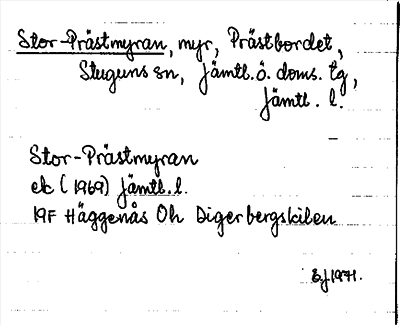 Stor-Prästmyran, myr, Prästbordet,
Stuguns sn, Jämtl. ö. doms. tg,
Jämtl. l.
Stor-Prästmyran
ek (1969) Jämtl. l.
19F Häggenås Öh Digerbergskilen
1971.